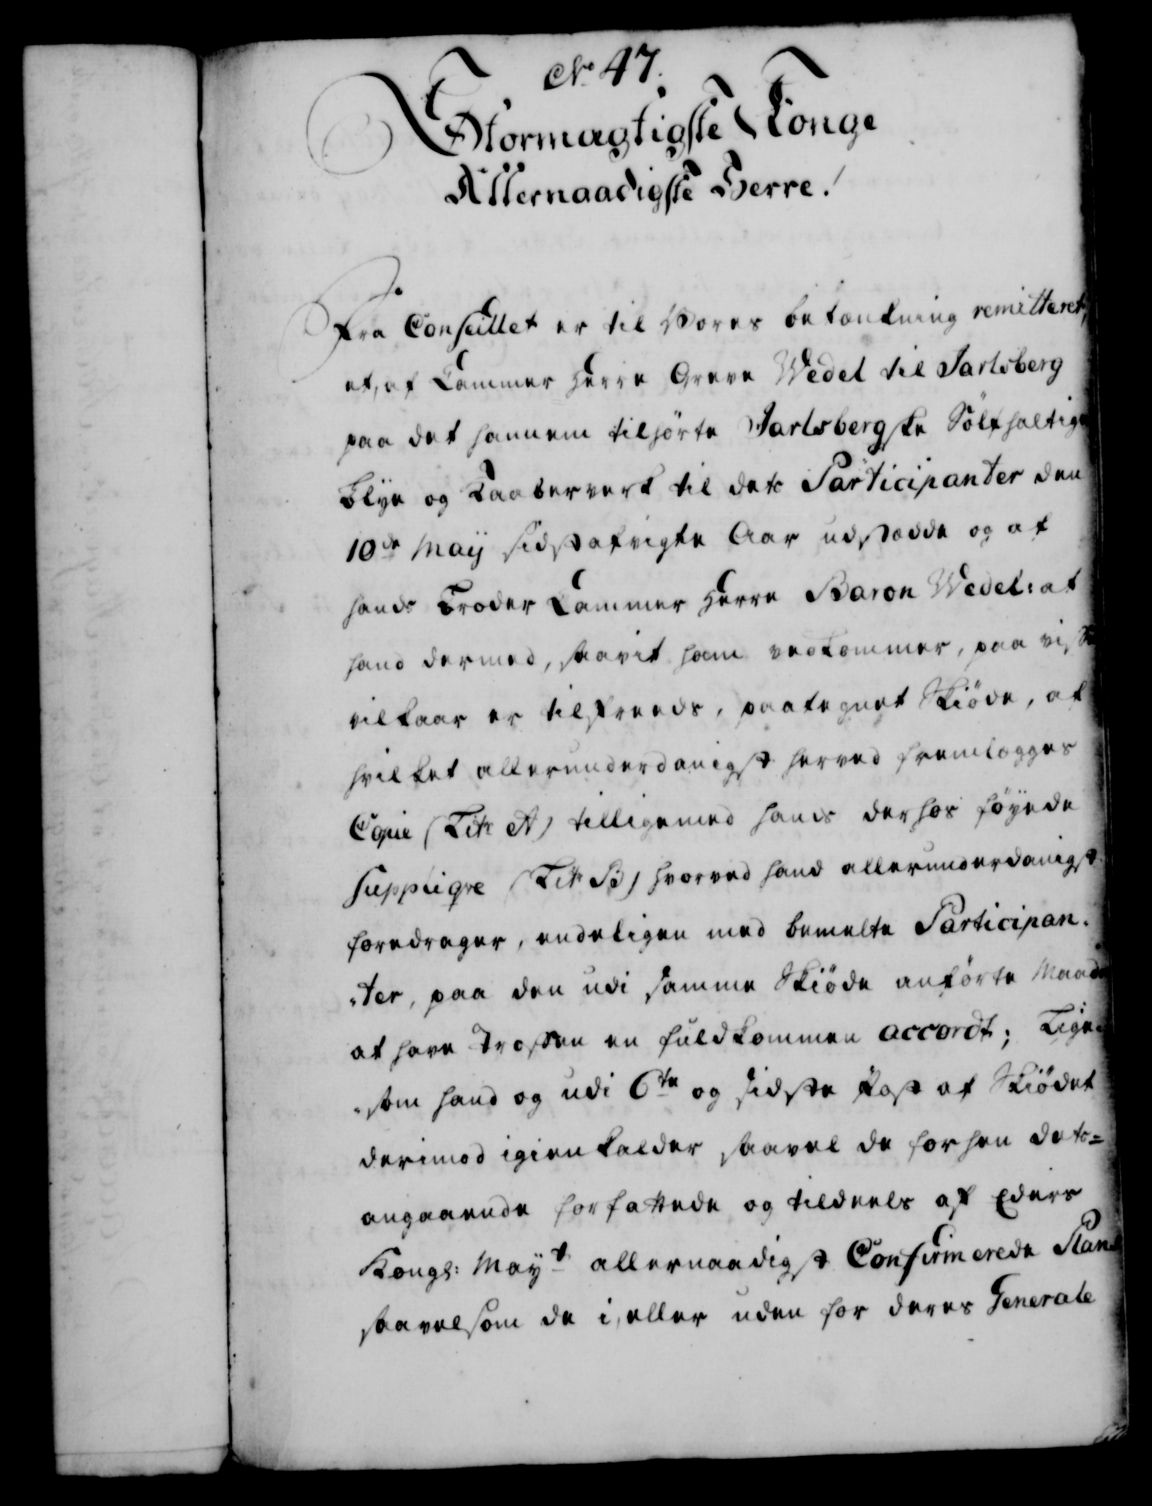 No 47.
Stormægtigste Konge
Allernaadigste Herre!
Fra Conseillet er til Vores betænkning remitteret,
et, af Cammer Herre Greve Wedel til Jarlsberg
paa det hannem tilhørte Jarlsbergske Sölfholtige
Blye og Kaaberverk til dets Participanter den
10de Maij sidstafvigte Aar udstædde og af
hands Broder Cammer Herre Baron Wedel: at
hand dermed, saavit ham vedkommer, paa visse
vilkaar er tilfreeds, paategnet Skiöde, af
hvilket allerunderdanigst herved fremlægges
Copie (Litr A) tilligemed hands derhos föyede
Supplique (Litr B) hvorved hand allerunderdanigst
foredrager, endeligen med bemelte Participan-
-ter, paa den udi samme Skiöde anförte Maade
at have troffen en fuldkommen accordt; Lige-
-som hand og udi 6te og sidste Post af Skiödet
derimod igienkalder saavel de forhen dets=
angaaende forfattede og tildeels af Eders
Kongl: Mayt allernaadigst Confirmerede Plan
saavelsom de i, eller uden for deres Generale